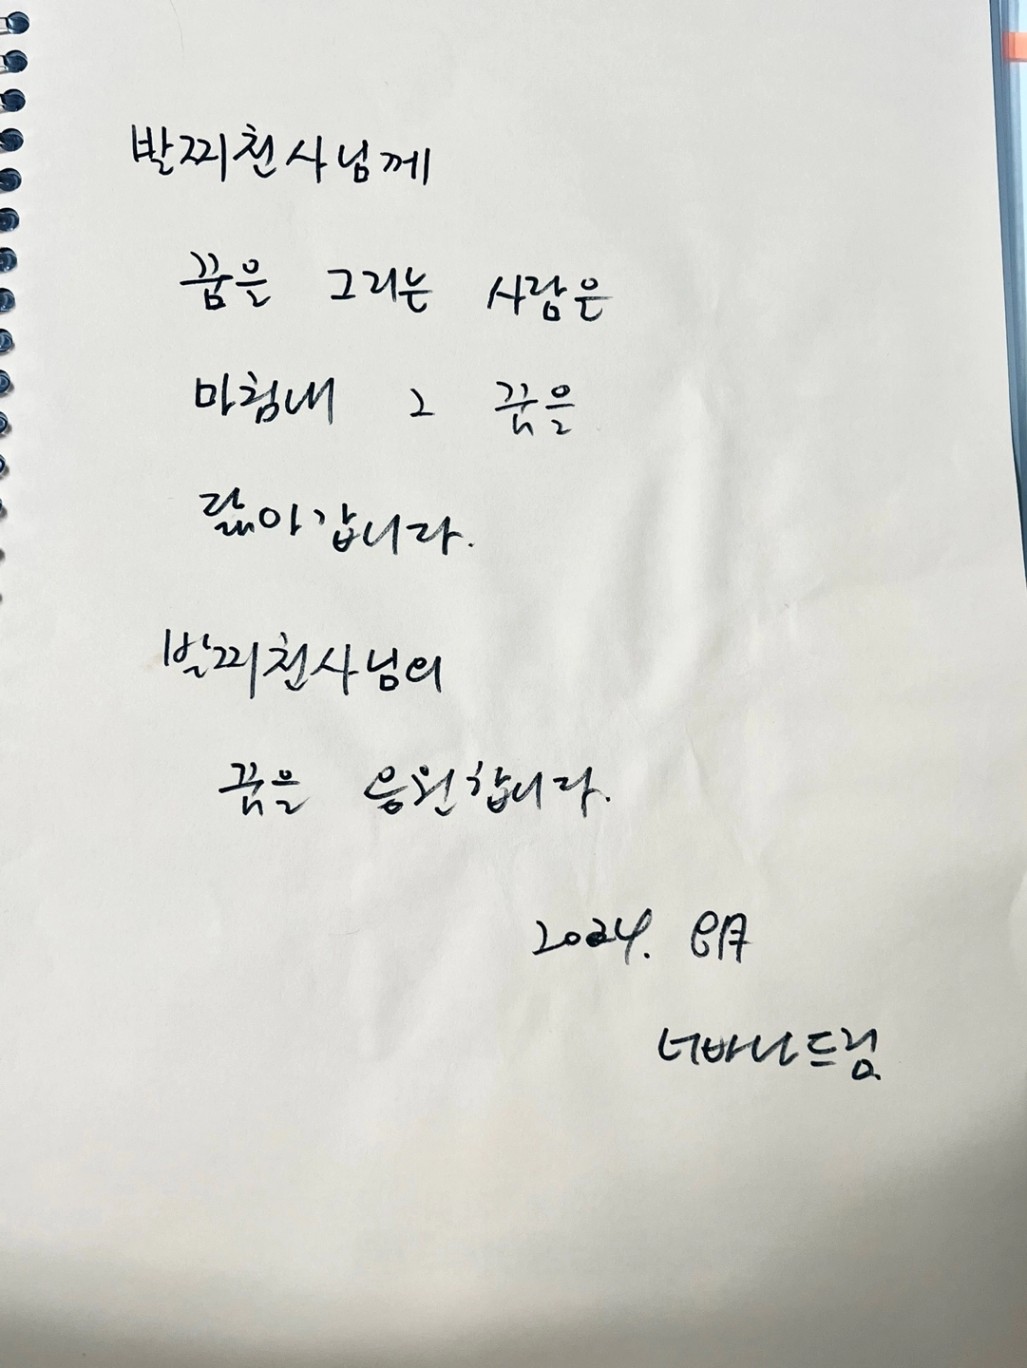 발찌천사님께
꿈을 그리는 사람은
마침내 그 꿈을
닮아갑니다.
발찌천사님의
꿈을 응원합니다.
2024. 8月
너바나드림